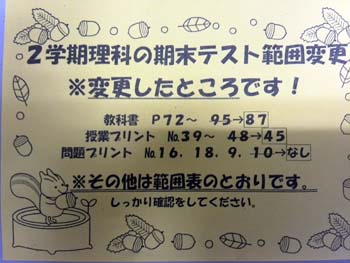 2学期理科の期末テスト範囲変更
※変更したところです!
教科書 P72〜 95→87
授業プリント №39〜 48→45
問題プリント №16. 18. 9. 10→なし
※その他は範囲表のとおりです。
しっかり確認をしてください。